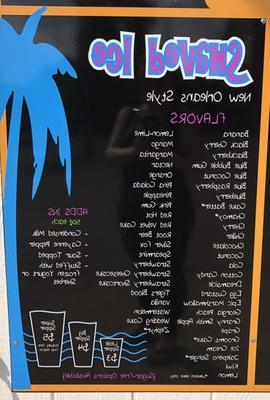 Shaved Ice
New Orleans Style
FLAVORS
Banana
Black Cherry
Blackberry
Blue Bubble Gum
Blue Coconut
Blue Raspberry
Blueberry
Butter
Chamoy*
Chocolate
Coconut
Cola
Cotton Candy
Dreamsicle
Egg Custard
Georgia Peach
Granny Smith Apple
Grape
Ice Cream
Kiwi
Lemon
Lemon-Lime
Mango
Margarita
Nectar
Orange
Pina Colada
Pineapple
Pink Gum
Red Hot
Red Velvet Cake
Root Beer
Silver Fox
Spearmint
Strawberry
Strawberry Cheesecake
Strawberry Shortcake
Tigers Blood
Vanilla
Watermelon
Wedding Cake
*Zephyr*
ADDS INS
50¢ each
- Condensed Milk
- Cayenne Pepper
- Sour Topped
- Stuffed with
Frozen Yogurt or
Sherbet
$3
$4
$5
(Sugar-Free Options Available)